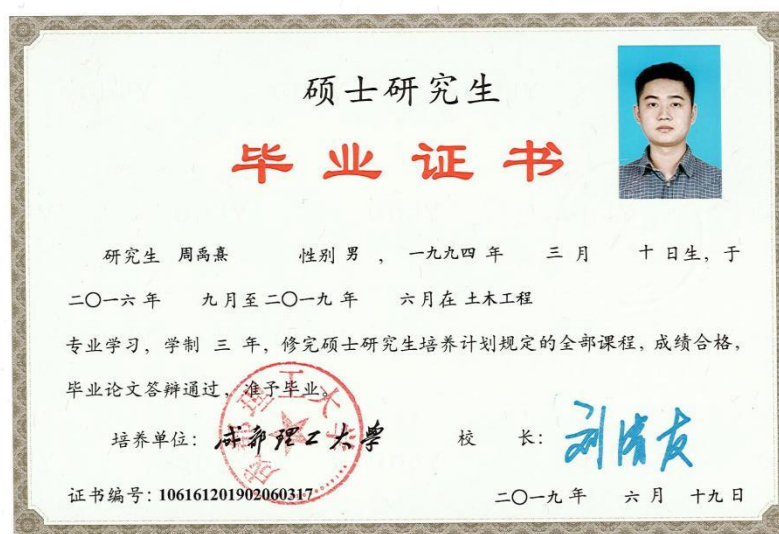 硕士研究生
毕业证书
研究生 周禹熹 性别 男 , 一九九四 年 三 月 十 日生, 于
二〇一六 年 九 月至 二〇一九 年 六 月在 土木工程
专业学习, 学制 三 年, 修完硕士研究生培养计划规定的全部课程, 成绩合格,
毕业论文答辩通过, 准予毕业。
成都理工大学
培养单位: 成都理工大学 校 长: 刘清友
证书编号: 106161201902060317 二〇一九 年 六 月 十九 日